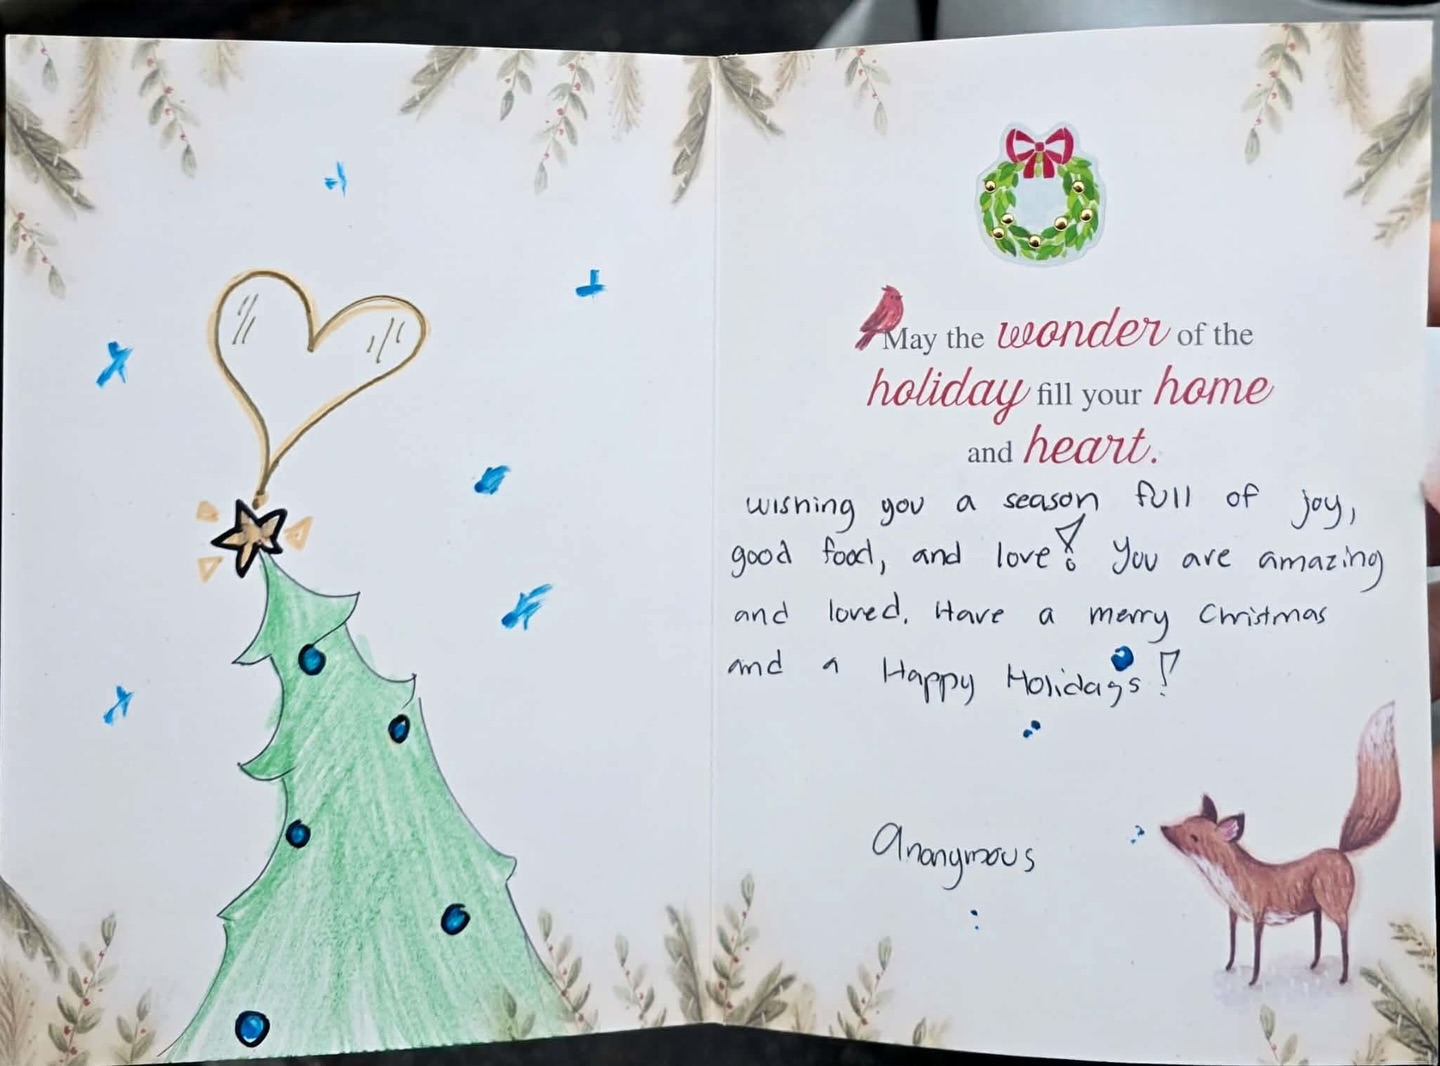 May the wonder of the
holiday fill your home
and heart.
wishing you a season full of joy,
good food, and love! You are amazing
and loved. Have a merry Christmas
and a Happy Holidays!
Anonymous